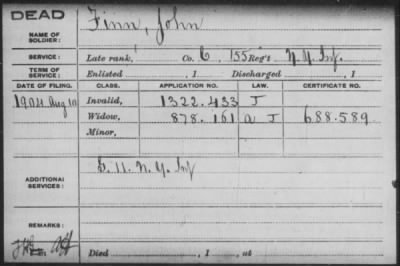 DEAD
NAME OF SOLDIER: Finn, John
SERVICE: Late rank, Co. C, 155 Reg't N.Y. Inf.
TERM OF SERVICE: Enlisted , 1 Discharged , 1
DATE OF FILING. CLASS. APPLICATION NO. LAW. CERTIFICATE NO.
1904 Aug 10 Invalid, 1322.433 J
Widow, 878.161 a J 688.589
Minor,
ADDITIONAL SERVICES: N.Y. Inf
REMARKS:
Died , 1 , at